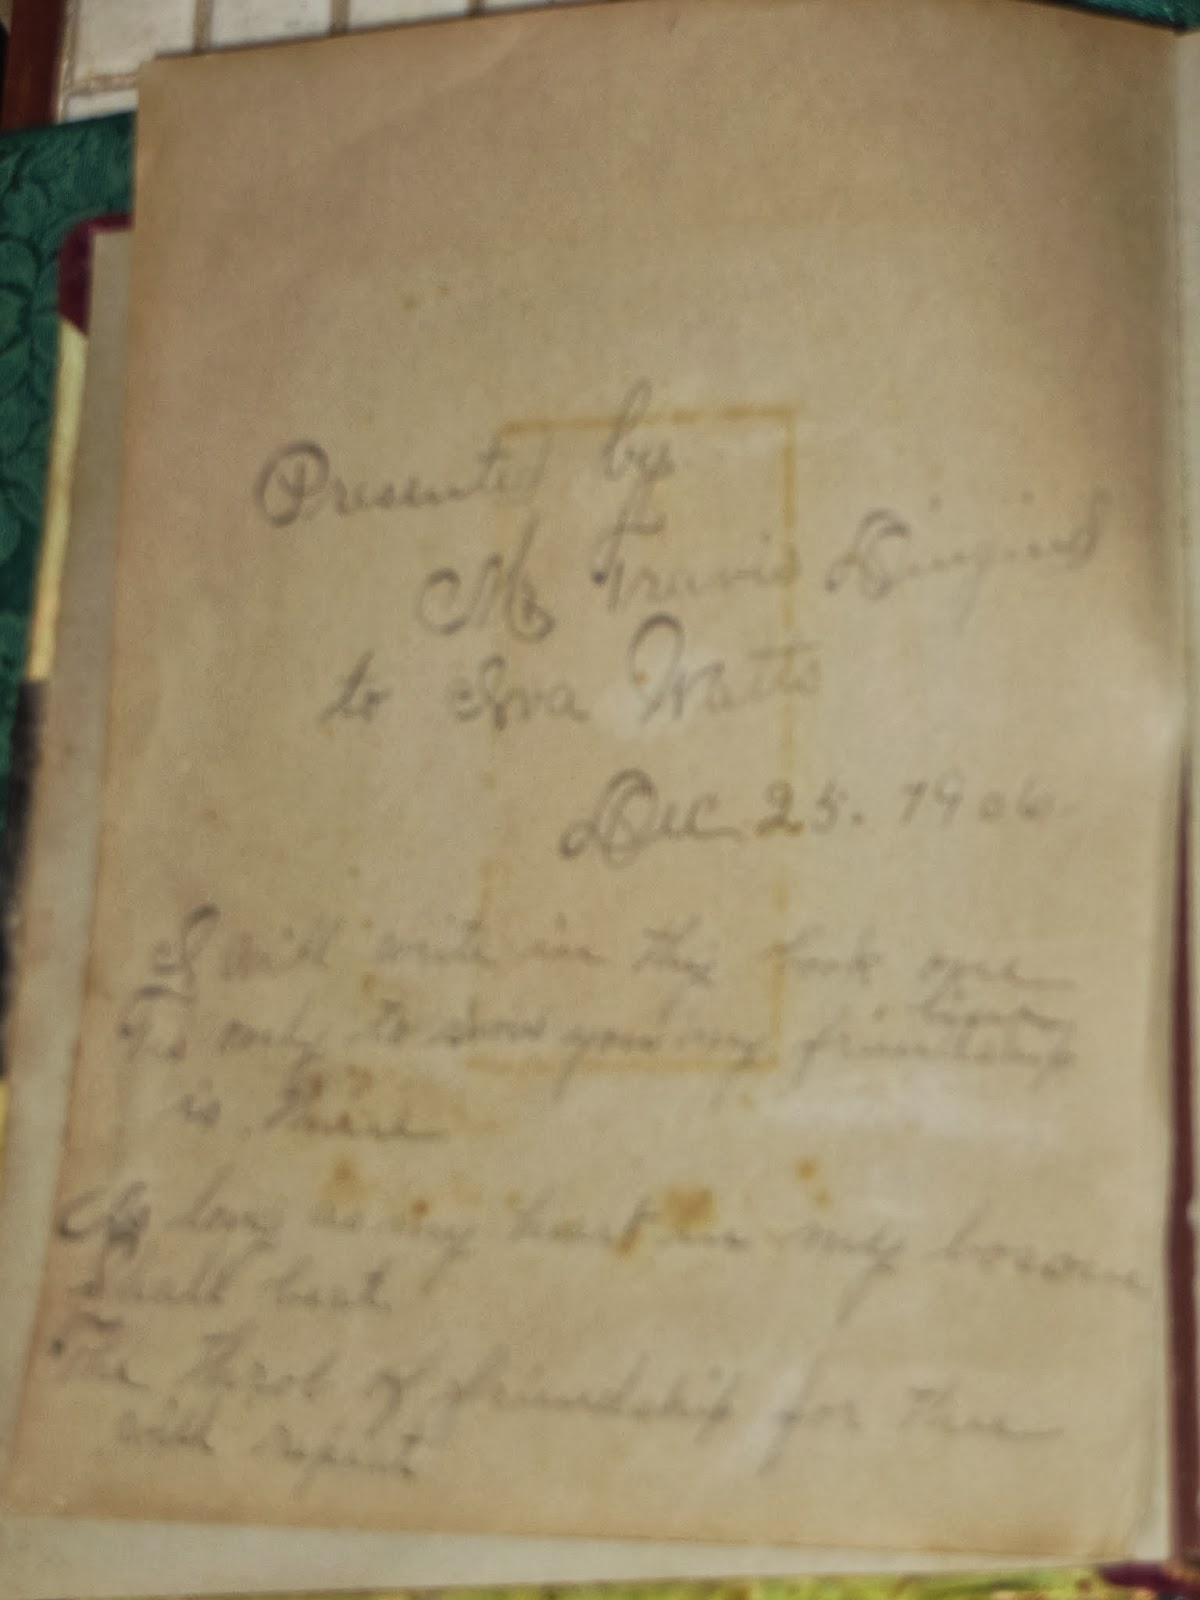 Presented by
Mr Travis
to Iva Watts
Dec 25. 1906
I will write in this book one
line
Tis only to show you my friendship
is thine
As long as my heart in my bosom
shall beat
The throb of friendship for thee
will repeat